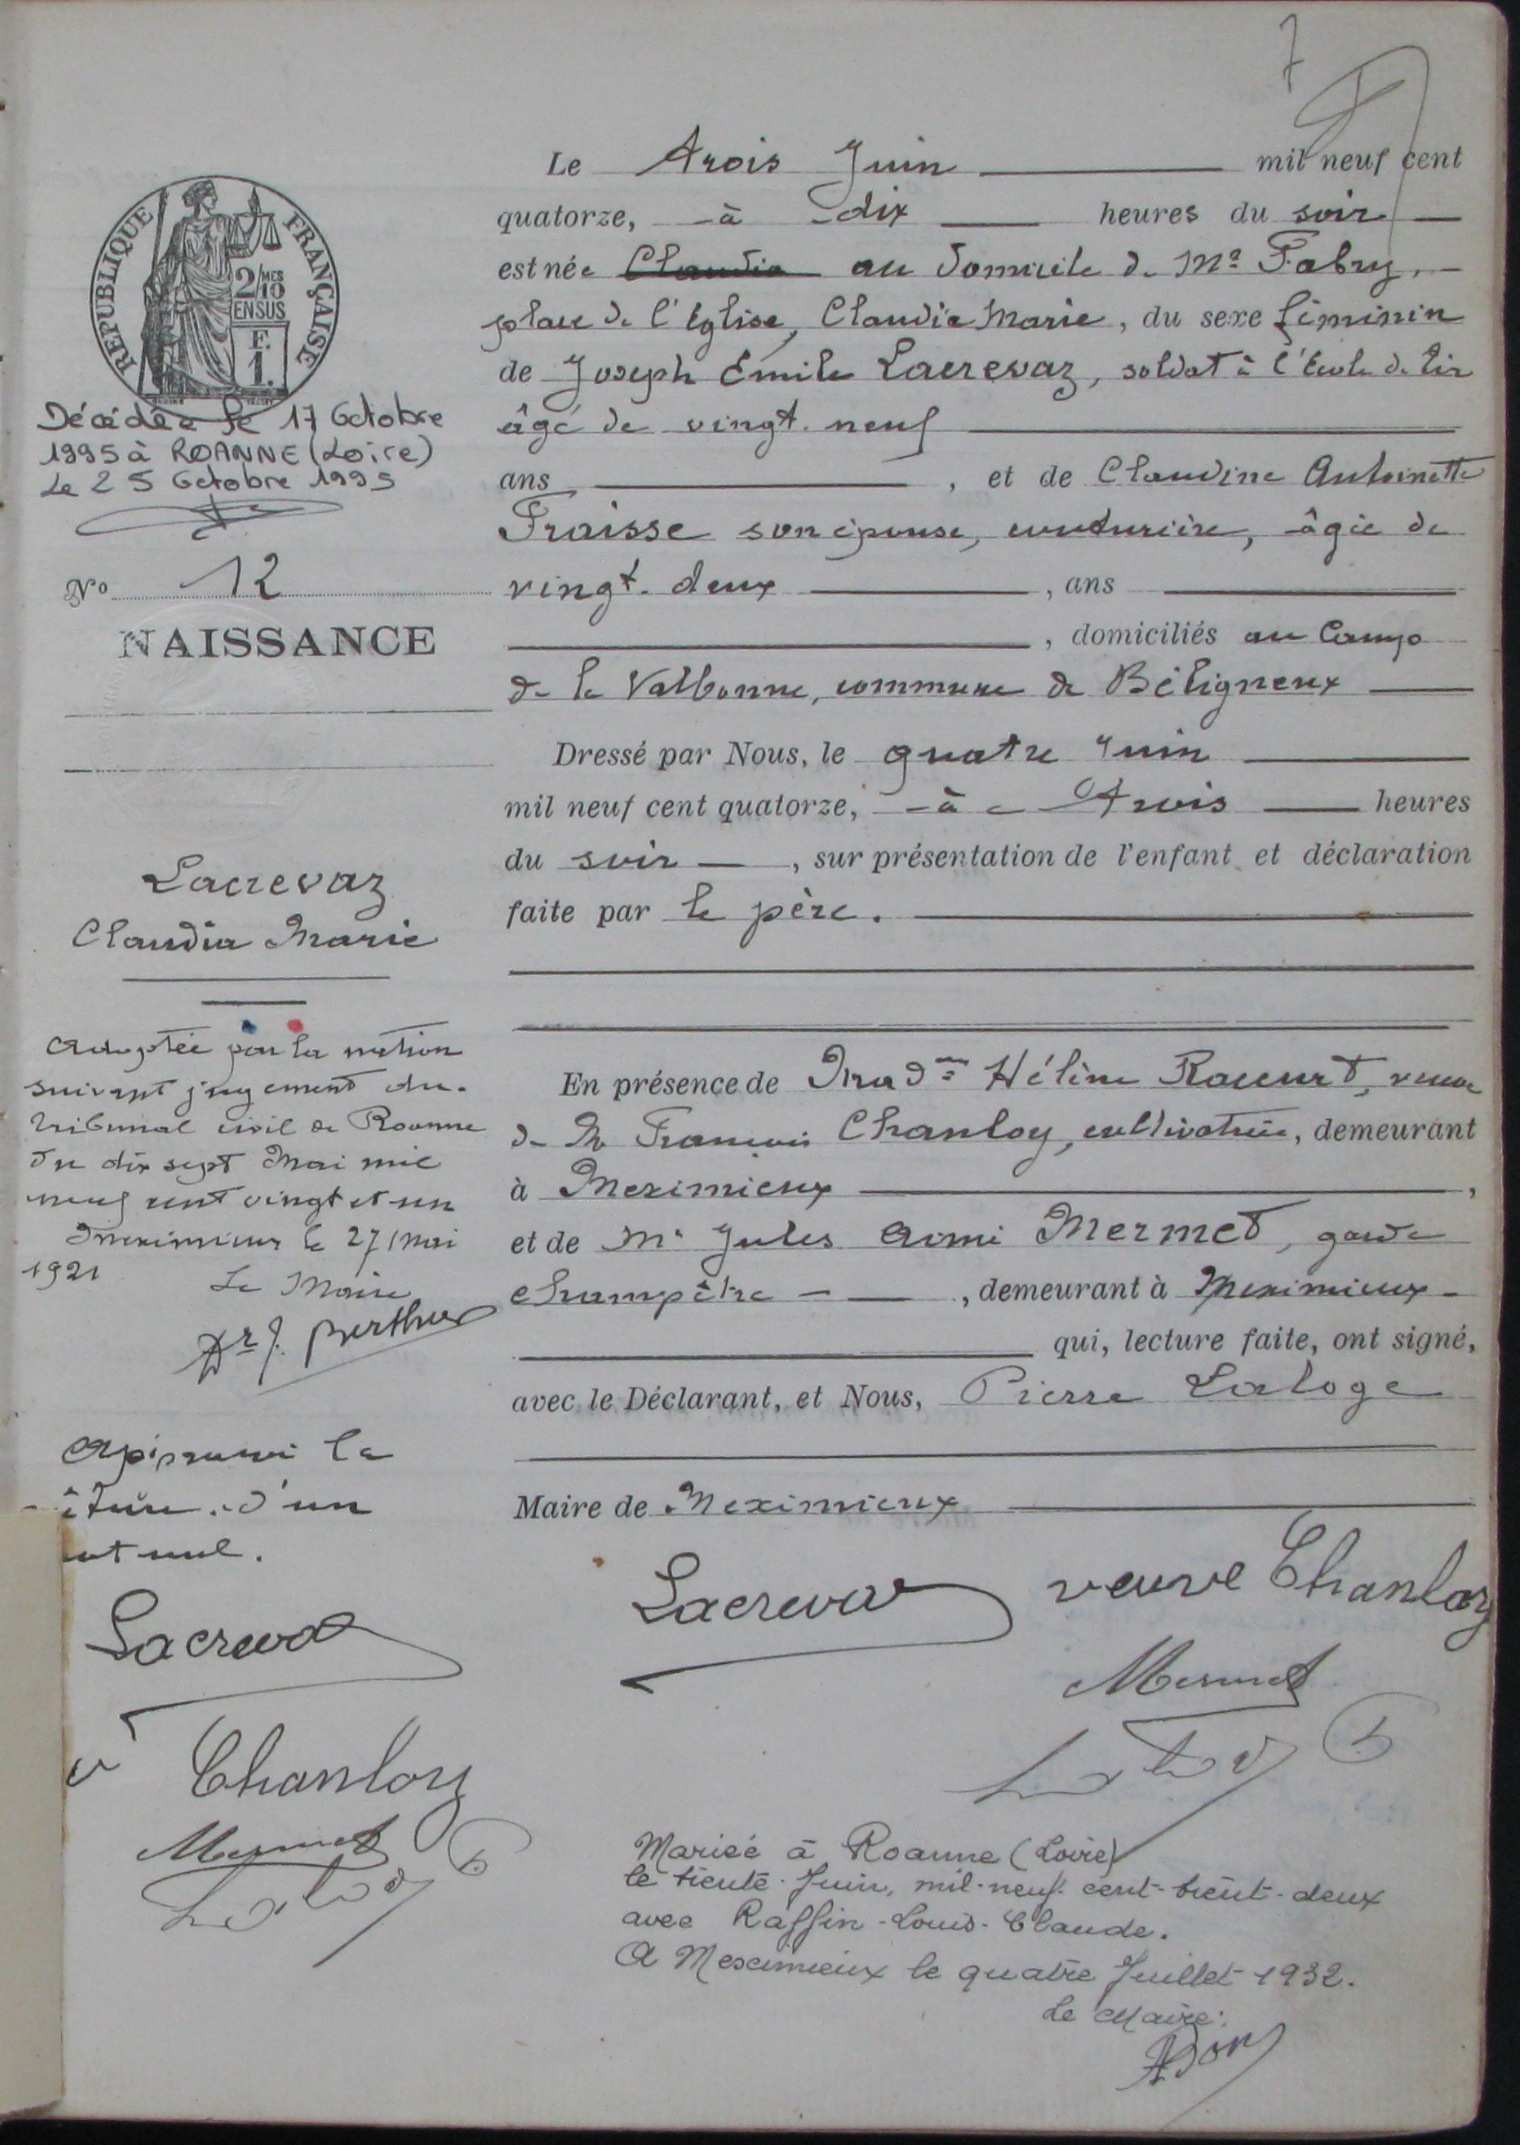 7
Le Trois Juin mil neuf cent
quatorze, à dix heures du soir
est née Claudia au domicile de Mr Fabry,
place de l'Eglise, Claudia Marie, du sexe féminin
de Joseph Emile Lacrevaz, soldat à l'Ecole de tir
âgé de vingt-neuf
ans, et de Claudine Antoinette
Fraisse son épouse, couturière, âgée de
vingt-deux, ans
, domiciliés au Camp
de la Valbonne, commune de Béligneux
Dressé par Nous, le quatre Juin
mil neuf cent quatorze, à Trois heures
du soir, sur présentation de l'enfant et déclaration
faite par le père.
En présence de Mad me Hélène, veuve
de Mr François Chanloy, cultivatrice, demeurant
à Meximieux,
et de Mr Jules Aimé Mermet, garde
champêtre, demeurant à Meximieux
qui, lecture faite, ont signé,
avec le Déclarant, et Nous, Pierre Laloge
Maire de Meximieux
Lacrevaz veuve Chanloy
Mermet
Mariée à Roanne (Loire)
le trente Juin, mil-neuf cent-trent-deux
avec Raffin-Louis-Claude.
A Meximieux le quatre Juillet 1932.
Le Maire:
REPUBLIQUE FRANÇAISE
2/10 MES
EN SUS
F.
1.
Décédée le 17 Octobre
1995 à ROANNE (Loire)
Le 25 Octobre 1995
No 12
NAISSANCE
Lacrevaz
Claudia Marie
Adoptée par la nation
suivant jugement du
tribunal civil de Roanne
du dix sept Mai mil
neuf cent vingt et un
Meximieux le 27 mai
1921
Le Maire
Dr J. Berthier
Approuvé la
d'un
mot nul.
Lacrevaz
v Chanloy
Mermet